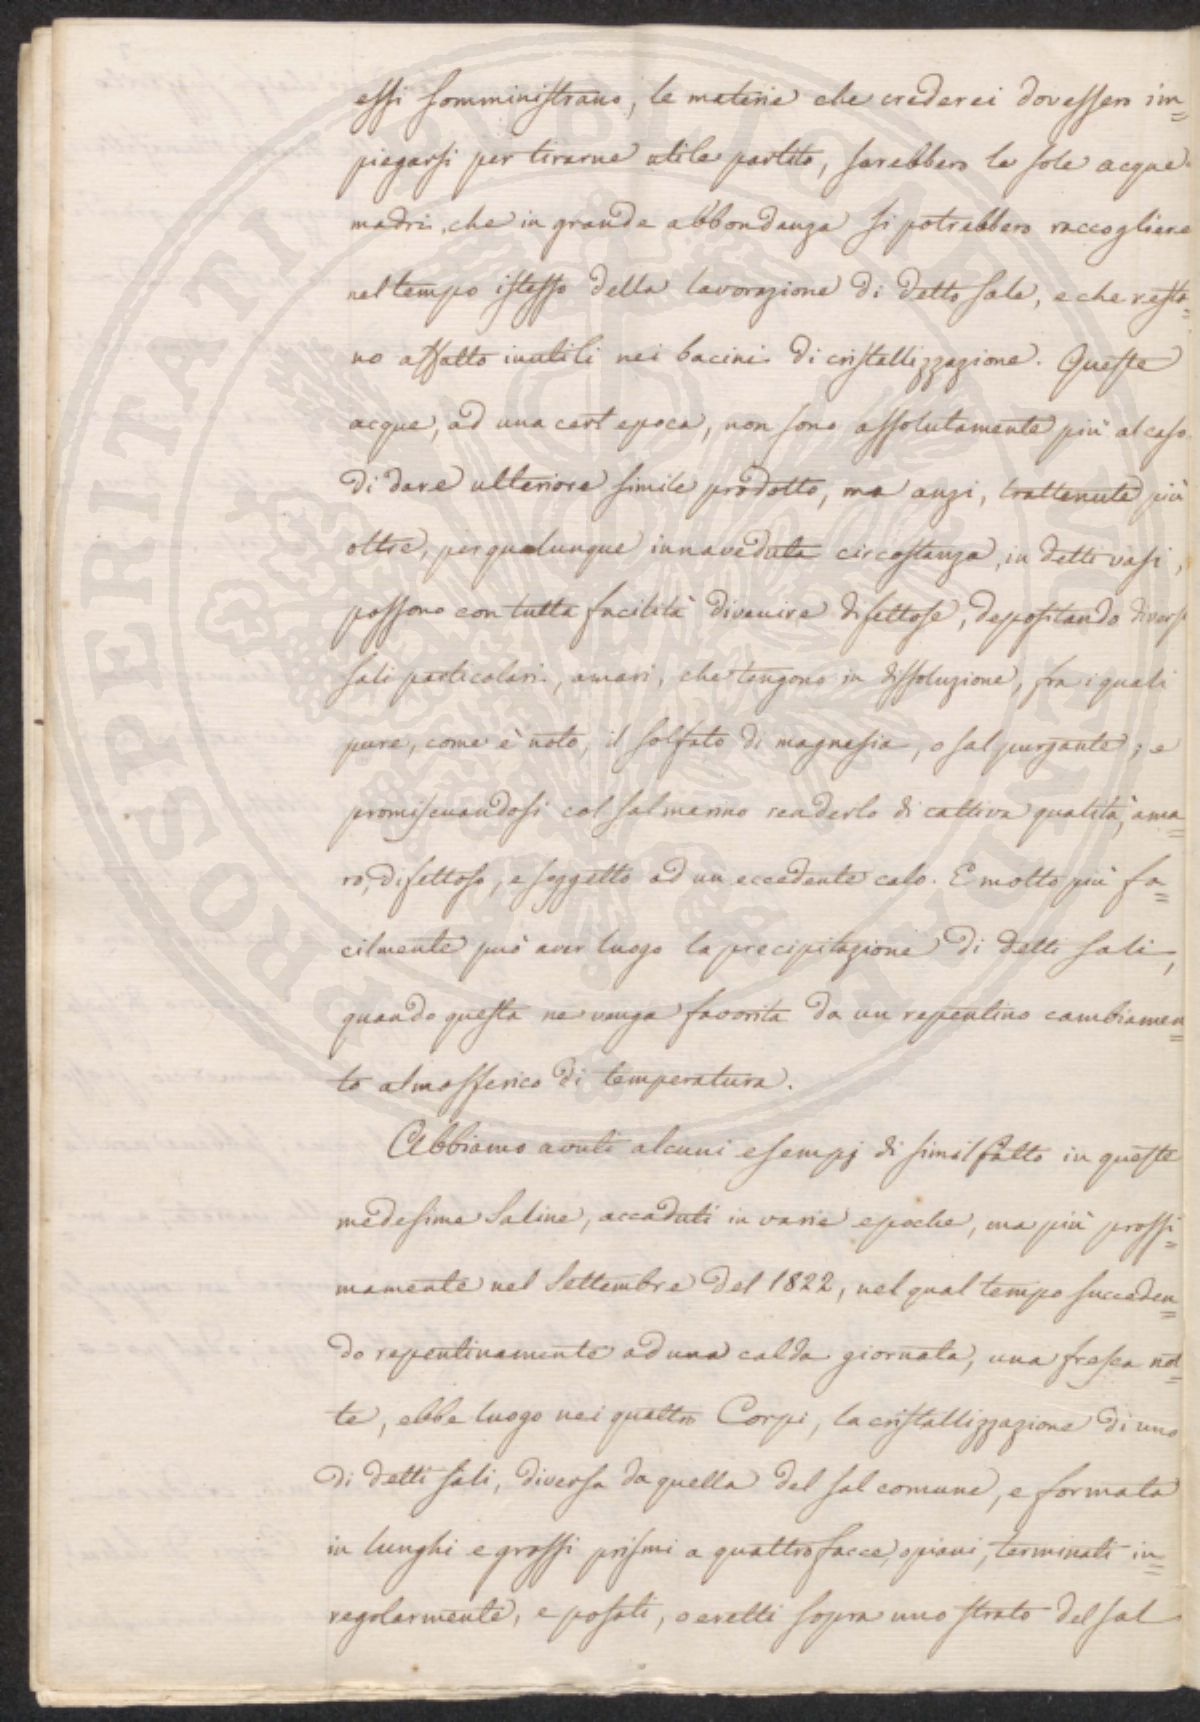 essi somministrano, le materie che crederei dovessero im=
piegarsi per tirarne utile partito, sarebbero le sole acque
madri, che in grande abbondanza si potrebbero raccogliere
nel tempo istesso della lavorazione di detto sale, e che resta=
no affatto inutili nei bacini di cristallizzazione. Queste
acque, ad una cert epoca, non sono assolutamente più al caso
di dare ulteriore simile prodotto, ma anzi, trattenute più
oltre, per qualunque innaveduta circostanza, in detti vasi,
possono con tutta facilità divenire difettose, depositando diversi
sali particolari, amari, che tengono in dissoluzione, fra i quali
pure, come è noto, il solfato di magnesia, o sal purgante; e
promiscuandosi col sal marino renderlo di cattiva qualità, ama=
ro, difettoso, e soggetto ad un eccedente calo. E molto più fa=
cilmente può aver luogo la precipitazione di detti sali,
quando questa ne venga favorita da un repentino cambiamen=
to atmosferico di temperatura.
Abbiamo avuti alcuni esempj di simil fatto in queste
medesime Saline, accaduti in varie epoche, ma più prossi=
mamente nel Settembre del 1822, nel qual tempo succeden=
do repentinamente ad una calda giornata, una fresca not=
te, ebbe luogo nei quattro Corpi, la cristallizzazione di uno
di detti sali, diversa da quella del sal comune, e formata
in lunghi e grossi prismi a quattro facce, o piani, terminati ir=
regolarmente, e posati, o eretti sopra uno strato del sal
PROSPERITATI PUBLICAE AUGENDAE